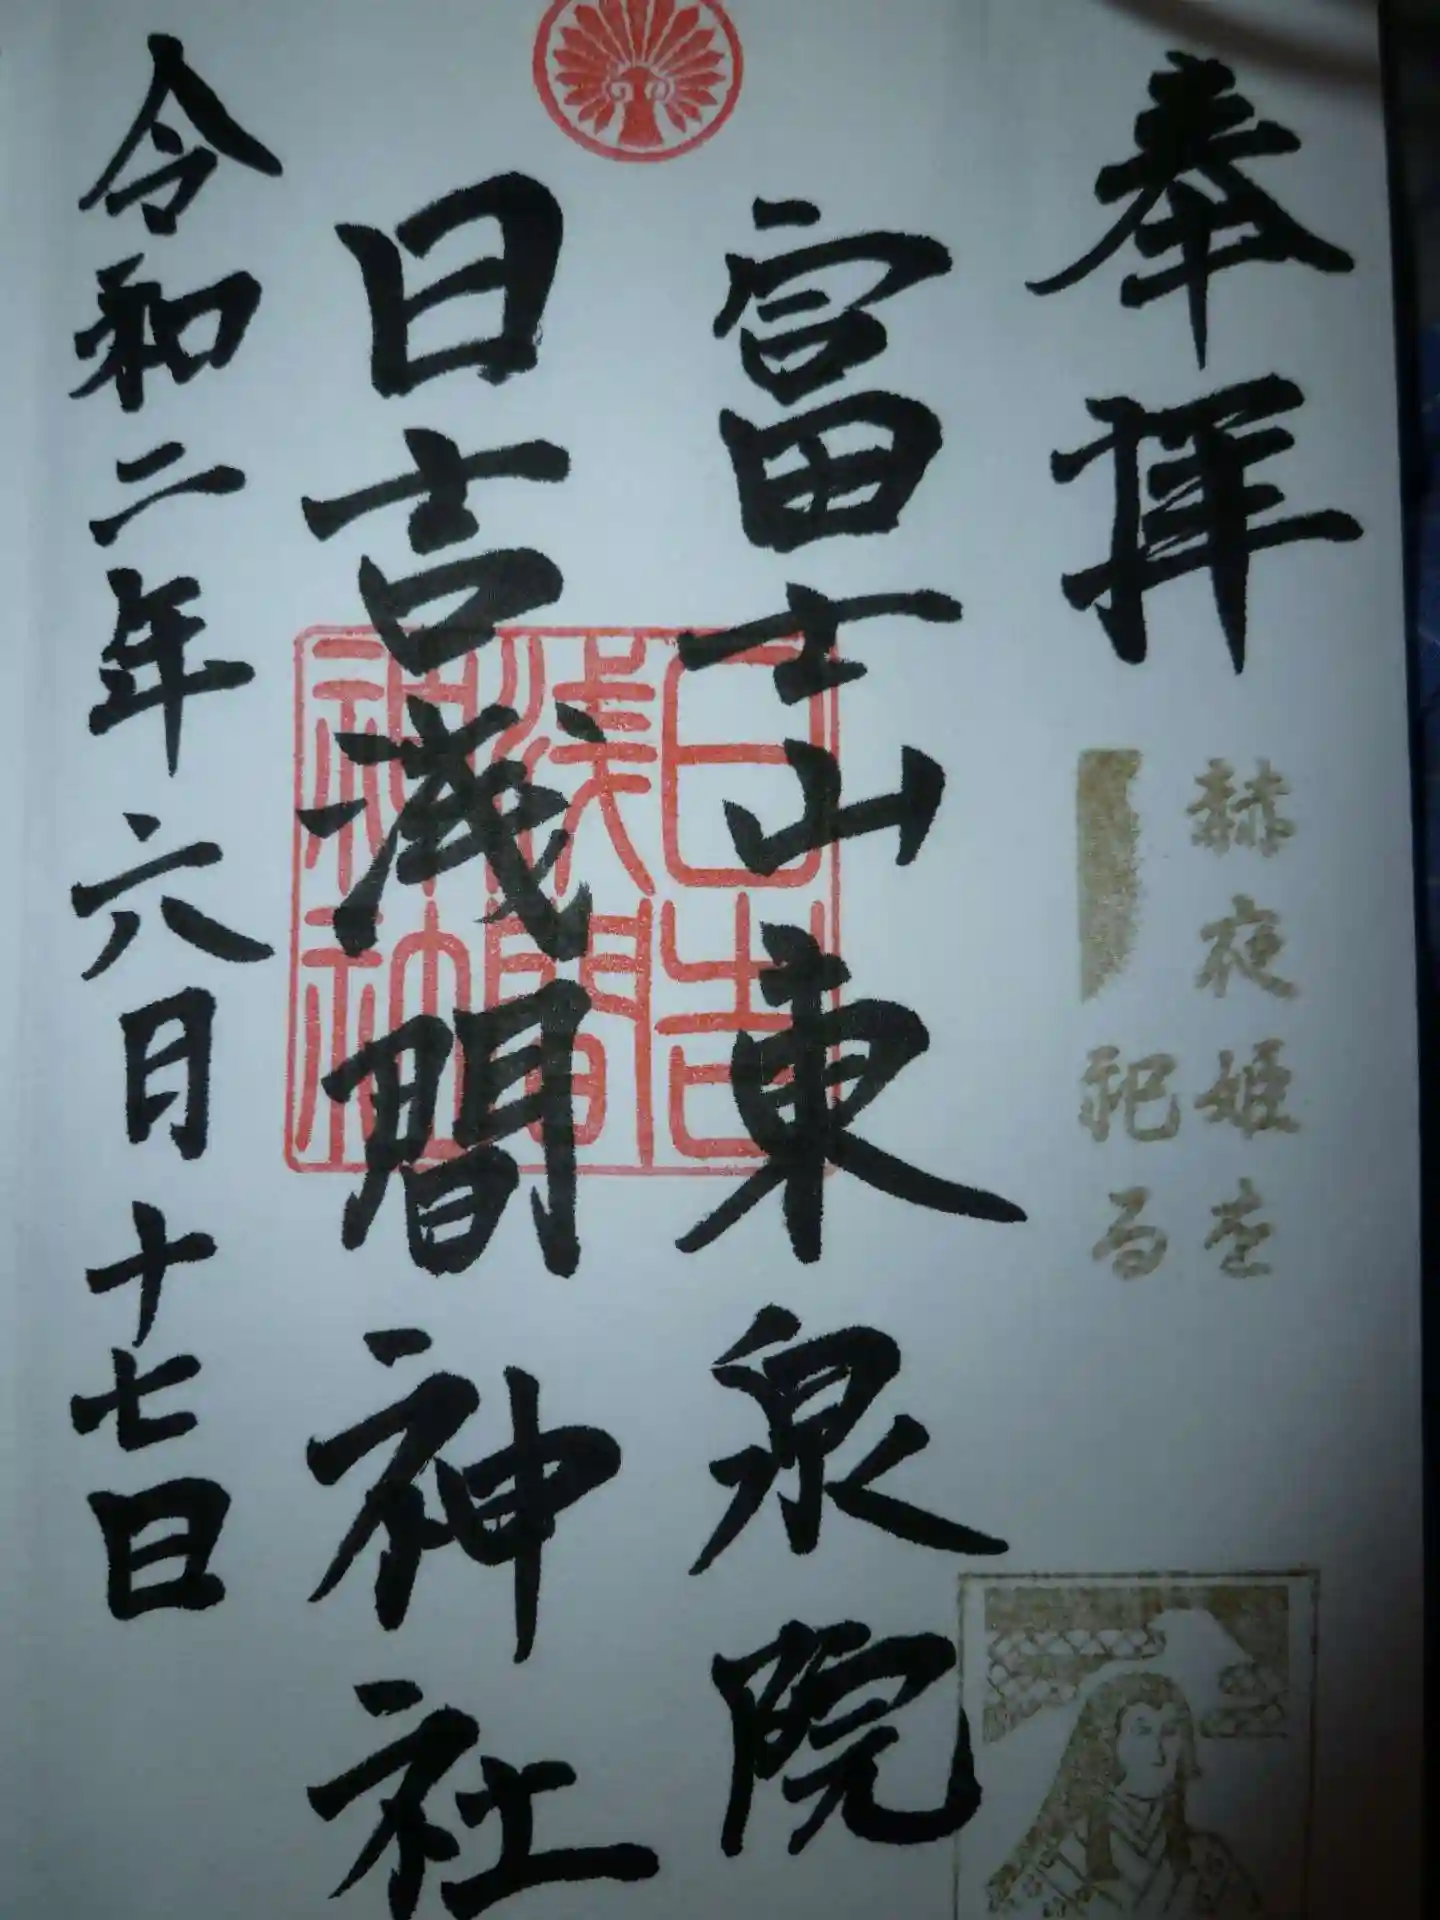 奉拝
赫夜姫を
祀る
富士山東泉院
日吉浅間神社
日吉
浅間
神社
令和二年六月十七日